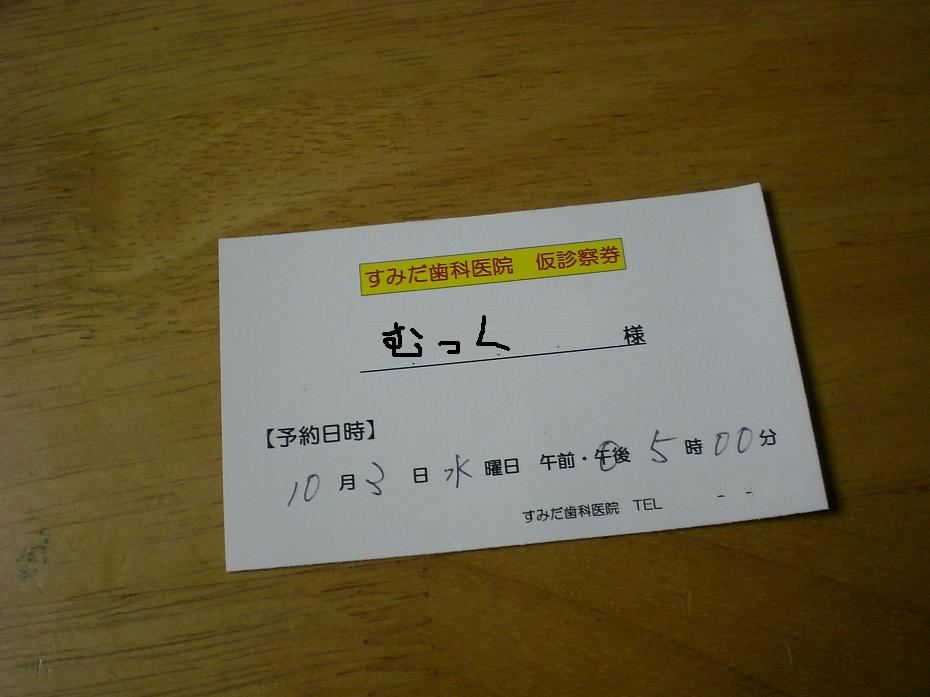 すみだ歯科医院 仮診察券
むっく 様
【予約日時】
10月3日 水曜日 午前・午後 5時00分
すみだ歯科医院 TEL - -